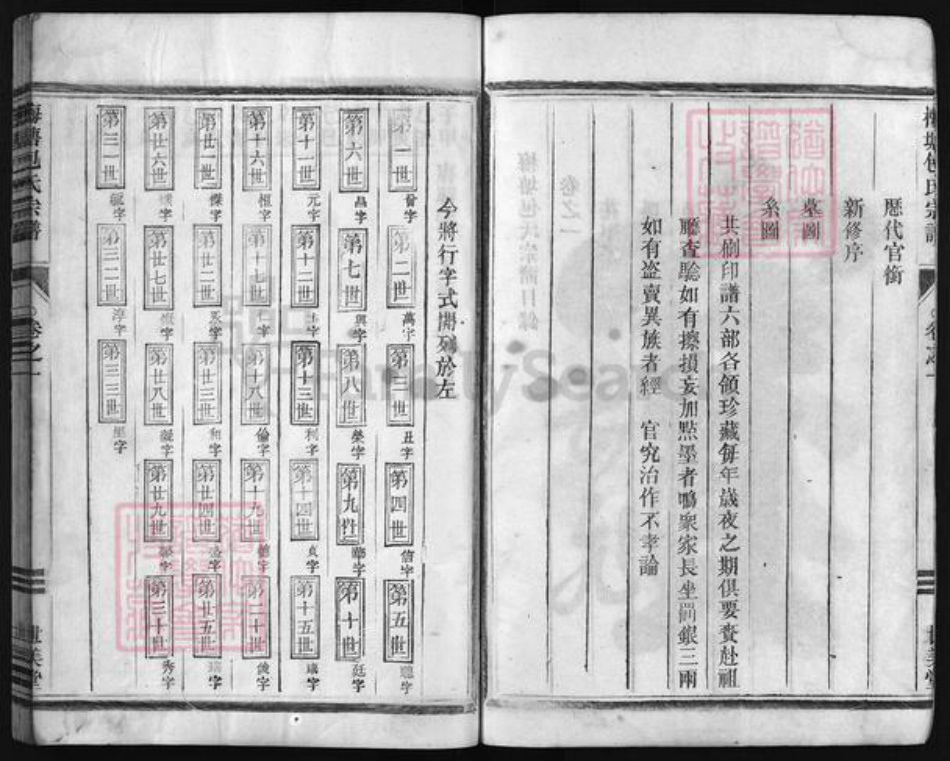 歷代官銜
新修序
墓圖
系圖
共刷印譜六部各領珍藏每年歲夜之期俱要賷赴祖
廳查驗如有擦損妄加點墨者鳴衆家長坐罰銀三兩
如有盜賣異族者經 官究治作不孝論
梅塘包氏宗譜 卷之一 世美堂
今將行字式開列於左
第一世 第二世 萬字 第三世 丑字 第四世 信字 第五世 聰字
第六世 昌字 第七世 興字 第八世 榮字 第九世 華字 第十世 廷字
第十一世 元字 第十二世 第十三世 利字 第十四世 貞字 第十五世
第十六世 恒字 第十七世 仁字 第十八世 倫字 第十九世 德字 第二十世 俊字
第廿一世 傑字 第廿二世 第廿三世 和字 第廿四世 第廿五世
第廿六世 第廿七世 第廿八世 第廿九世 第三十世 秀字
第三一世 第三二世 淳字 第三三世 里字
FamilySearch